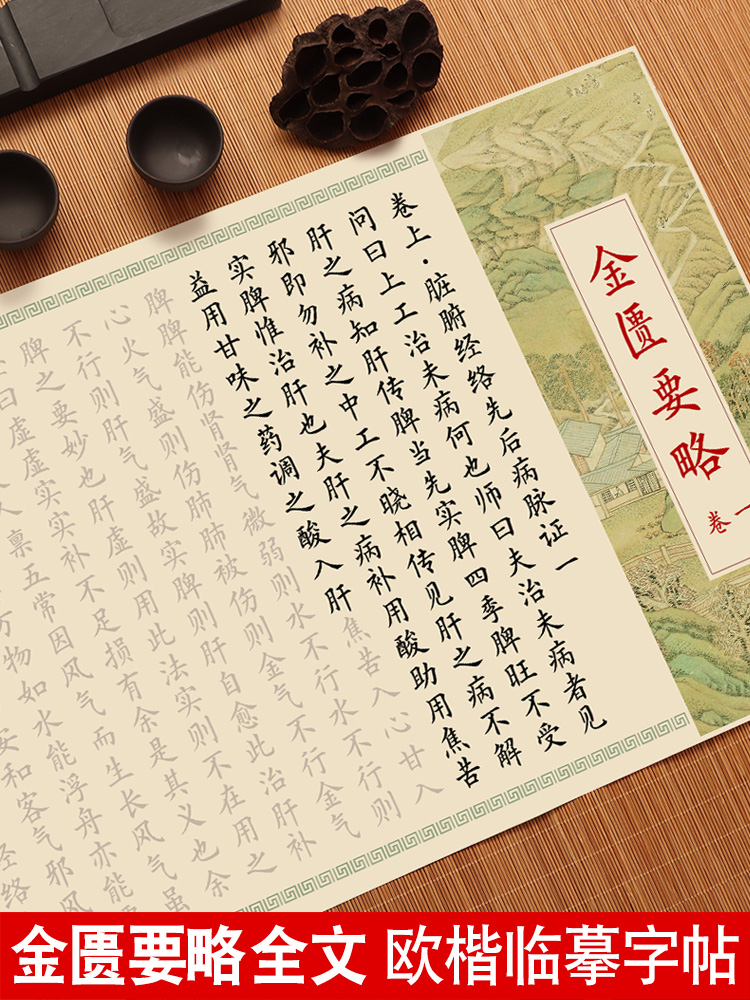 金匮要略
卷一
卷上·脏腑经络先后病脉证一
问曰上工治未病何也师曰夫治未病者见
肝之病知肝传脾当先实脾四季脾旺不受
邪即勿补之中工不晓相传见肝之病不解
实脾惟治肝也夫肝之病补用酸助用焦苦
益用甘味之药调之酸入肝焦苦入心甘入
脾脾能伤肾肾气微弱则水不行水不行则
心火气盛则伤肺肺被伤则金气不行金气
不行则肝气盛故实脾则肝自愈此治肝补
脾之要妙也肝虚则用此法实则不在用之
曰虚虚实实补不足损有余是其义也余
人禀五常因风气而生长风气虽
万物如水能浮舟亦能
安和客气邪风
经络
金匮要略全文 欧楷临摹字帖